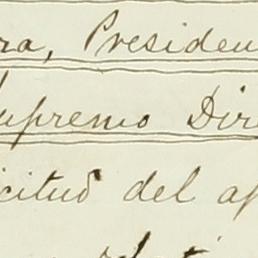 ra, Presiden
upremo Dir
icitud del ap